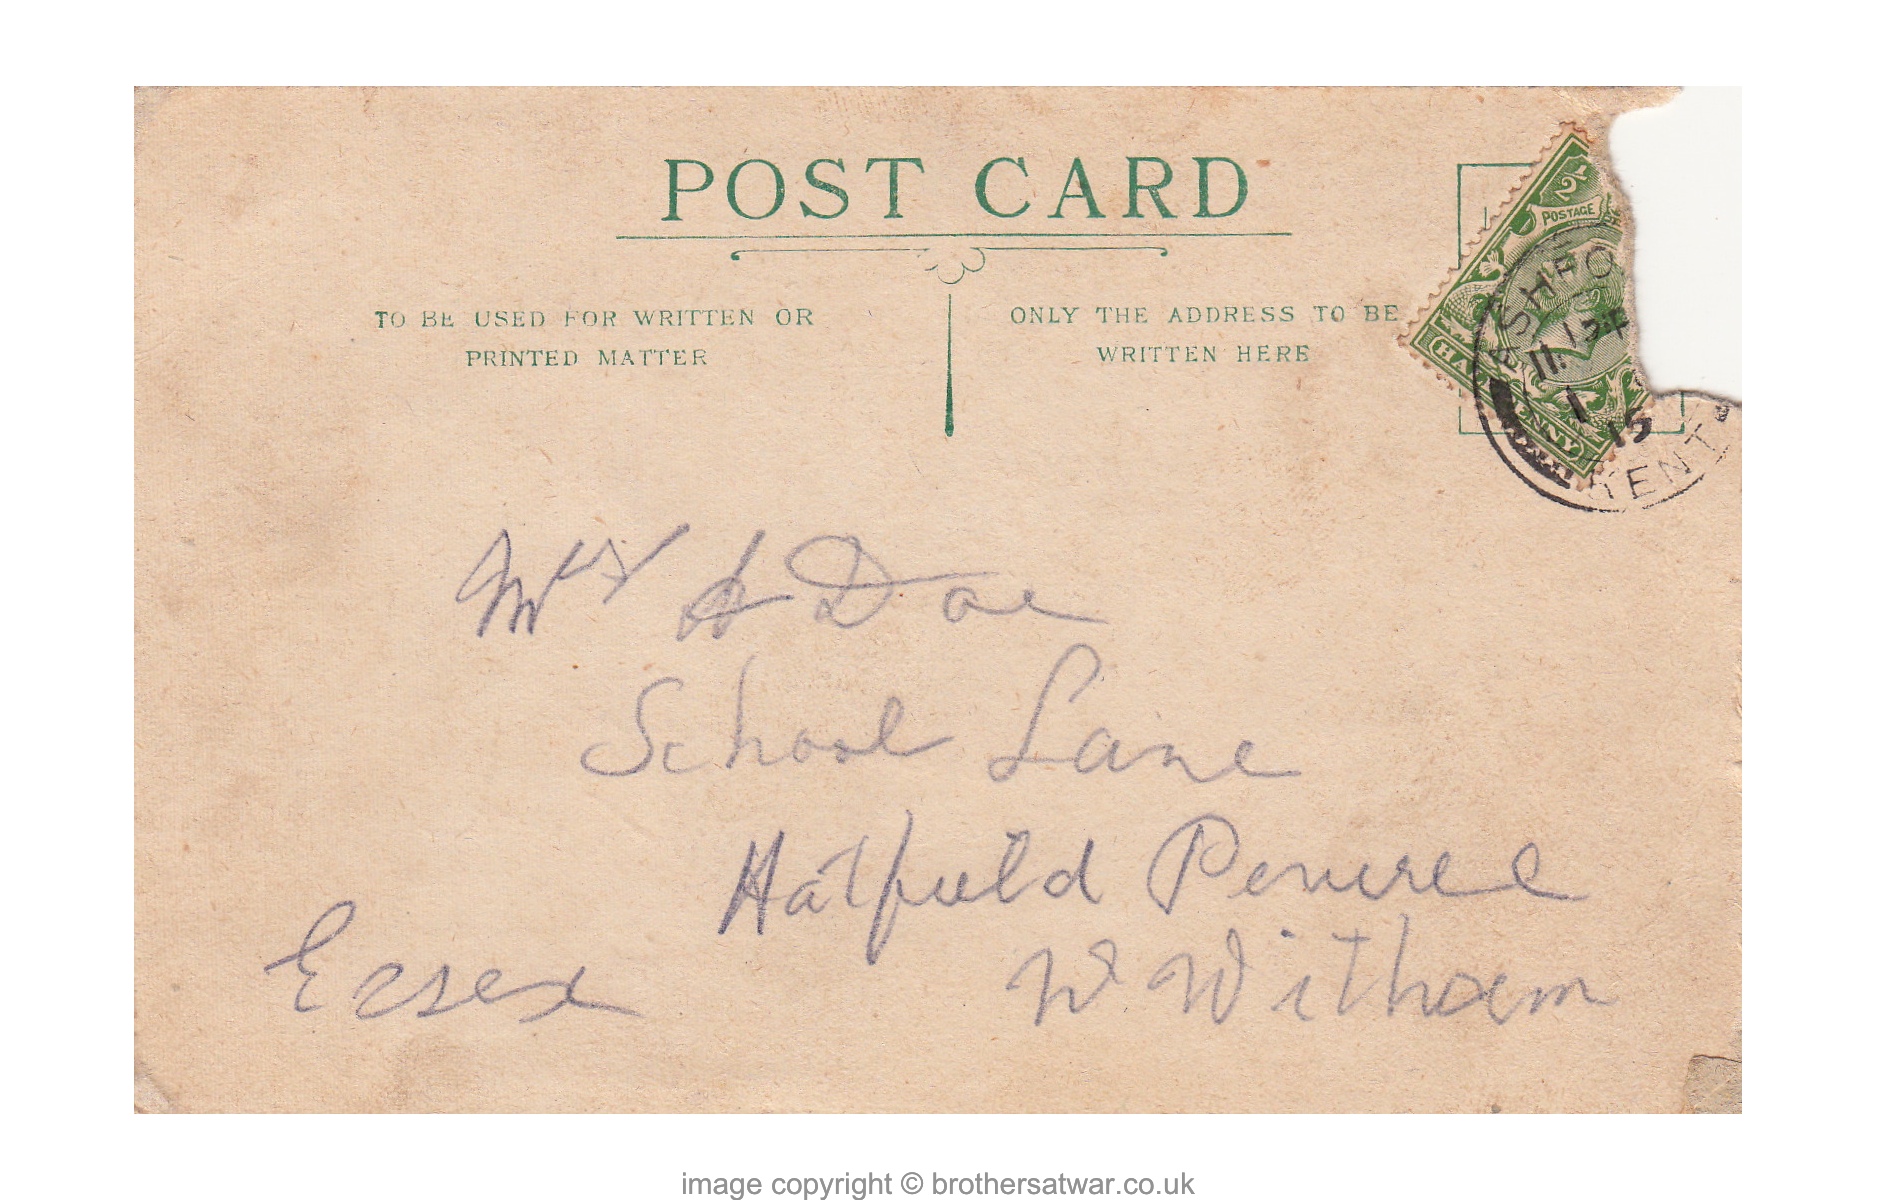 POST CARD
TO BE USED FOR WRITTEN OR
PRINTED MATTER
ONLY THE ADDRESS TO BE
WRITTEN HERE
1/2
POSTAGE
HA
ENNY
ASHFO
11
1
15
KENT
Mrs A Doe
School Lane
Hatfield Peverel
W. Witham
Essex
image copyright © brothersatwar.co.uk